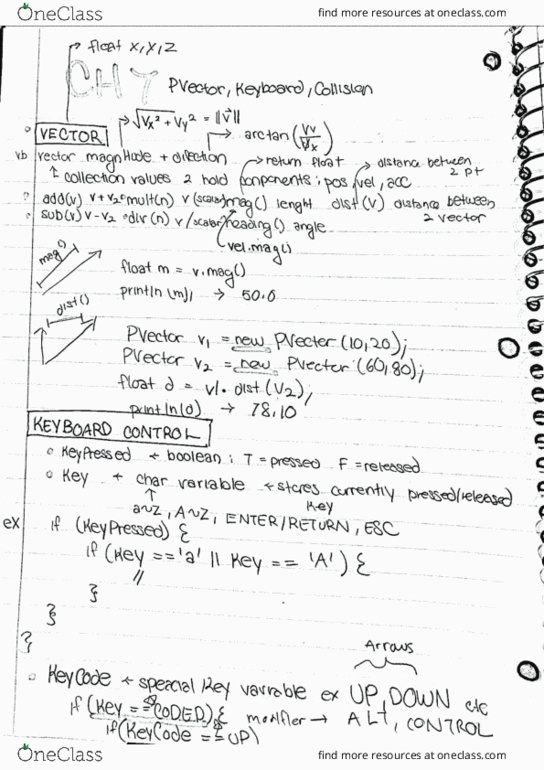 OneClass
find more resources at oneclass.com
float x, y, z
CH 7 PVector, Keyboard, Collision
√Vx² + Vy² = ||V||
VECTOR → arctan (Vy/Vx)
vb vector magnitude + direction → return float → distance between 2 pt
↑ collection values 2 hold components : pos, vel, acc
add(v) v+v2 • mult(n) v (scalar) mag() lenght dist(v) distance between 2 vector
sub(v) v-v2 • div(n) v/scalar heading() angle
vel.mag()
mag()
float m = v.mag()
println(m); → 50.0
dist()
PVector v1 = new PVector (10,20);
PVector v2 = new PVector (60,80);
float d = v1. dist (v2);
println(d) → 78,10
KEYBOARD CONTROL
○ KeyPressed ← boolean : T = pressed F = released
○ Key ← char variable ← stores currently pressed/released key
↑
a~Z, A~Z, ENTER/RETURN, ESC
ex if (KeyPressed) {
if (Key == 'a' || Key == 'A') {
//
}
}
}
Arrows
○ KeyCode ← special key variable ex UP, DOWN etc
if (Key == CODED) { modifier → ALt, CONTROL
if (KeyCode == UP)
OneClass
find more resources at oneclass.com